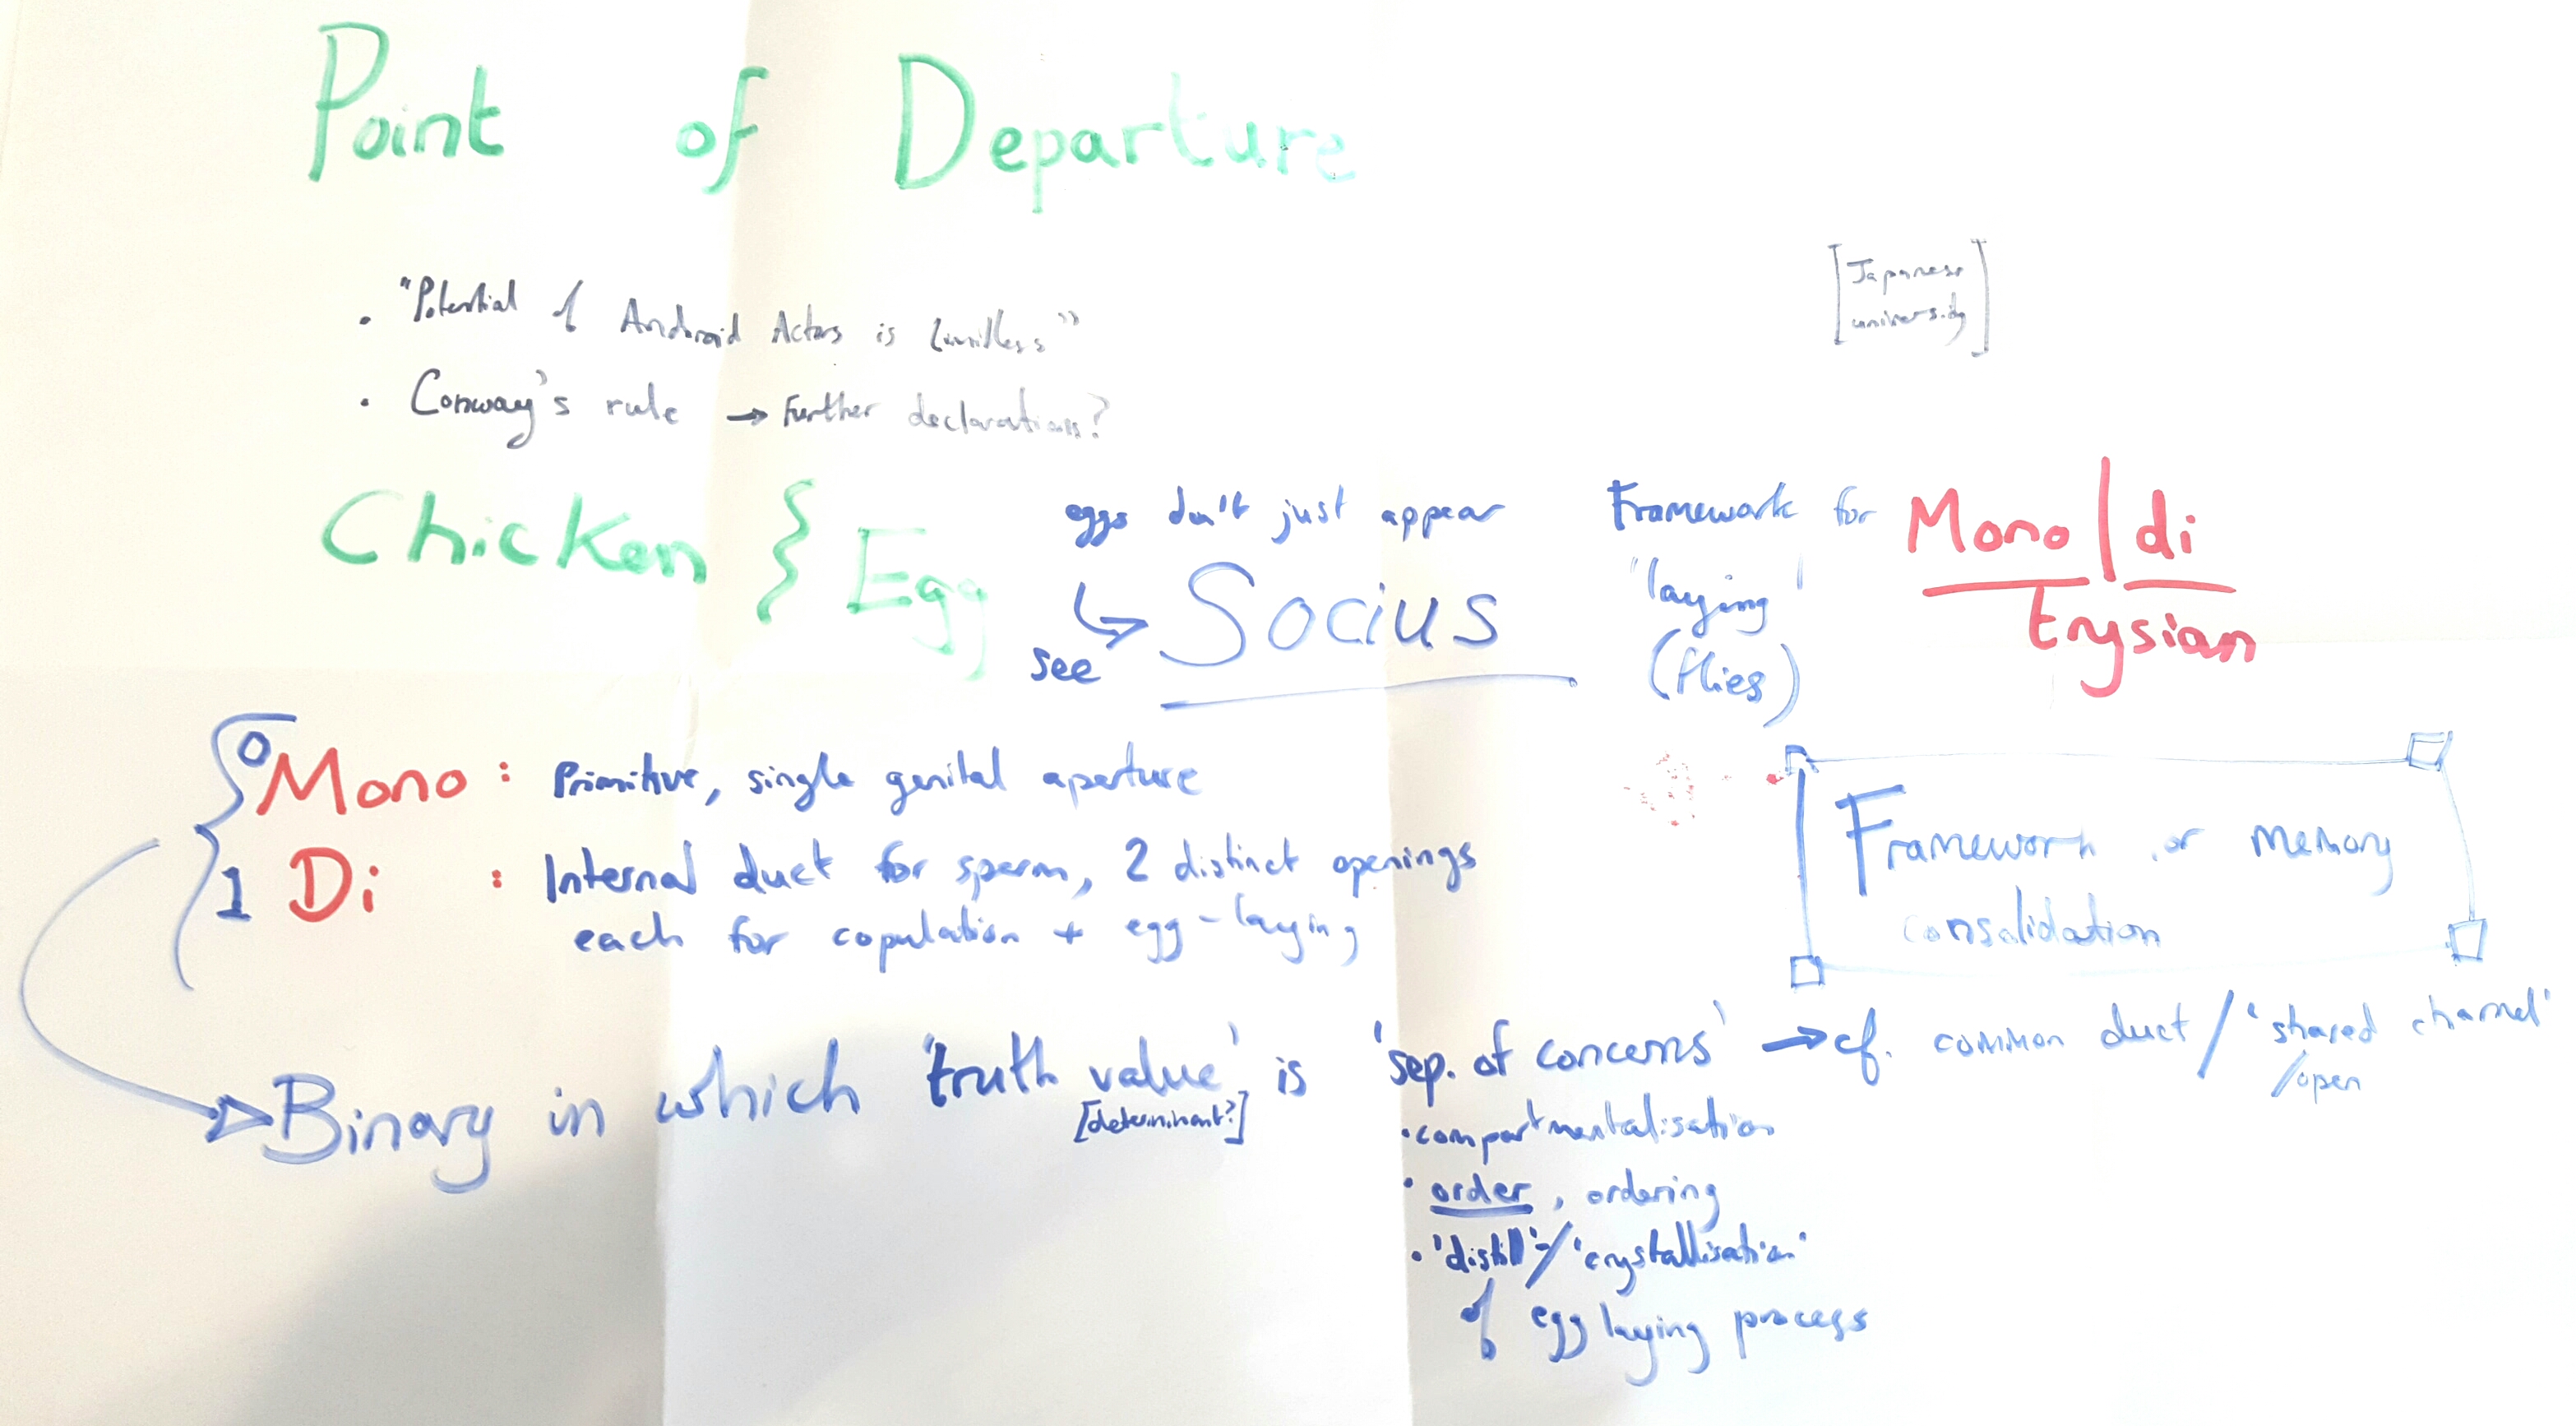 Point of Departure
[Japanese
university]
• "Potential of Android Actors is limitless"
• Conway's rule → Further declarations?
Chicken } Egg
eggs don't just appear
see ↳ Socius
Framework for
"laying"
(flies)
Mono | di
trysian
0 Mono : Primitive, single genital aperture
1 Di : Internal duct for sperm, 2 distinct openings
each for copulation + egg-laying
Framework or memory
consolidation
Binary in which 'truth value' is 'sep. of concerns' → cf. common duct / 'shared channel'
/open
[determinant?]
• compartmentalisation
• order, ordering
• 'distill'-/'crystallisation'
of egg laying process